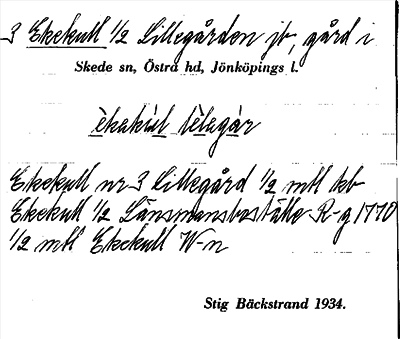 3 Ekekull 1/2 Lillegården jb, gård i
Skede sn, Östra hd, Jönköpings l.
èkakùl lèlagár
Ekekull nr 3 Lillegård 1/2 mtl kb
Ekekull 1/2 Länsmansboställe R-g 1770
1/2 mtl Ekekull W-n
Stig Bäckstrand 1934.